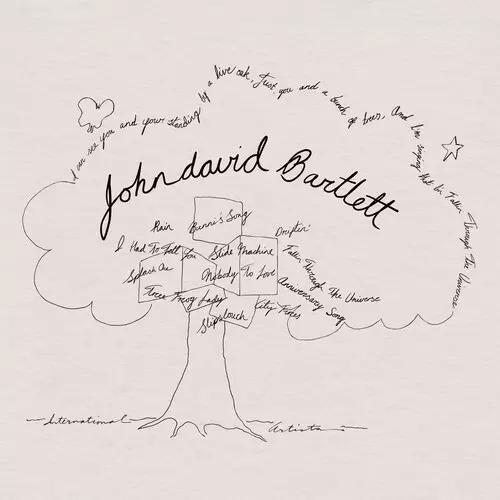 I can see you and your standing by a live oak, Just you and a bunch of trees, And I'm singing that I'm Fallin Through The Universe
Johndavid Bartlett
Rain Bunni's Song Driftin'
I Had To Tell You Slide Machine Fallin Through The Universe
Splash One Nobody To Love Anniversary Song
Tree Frog Lady City Pines
Slipslouch
International Artists